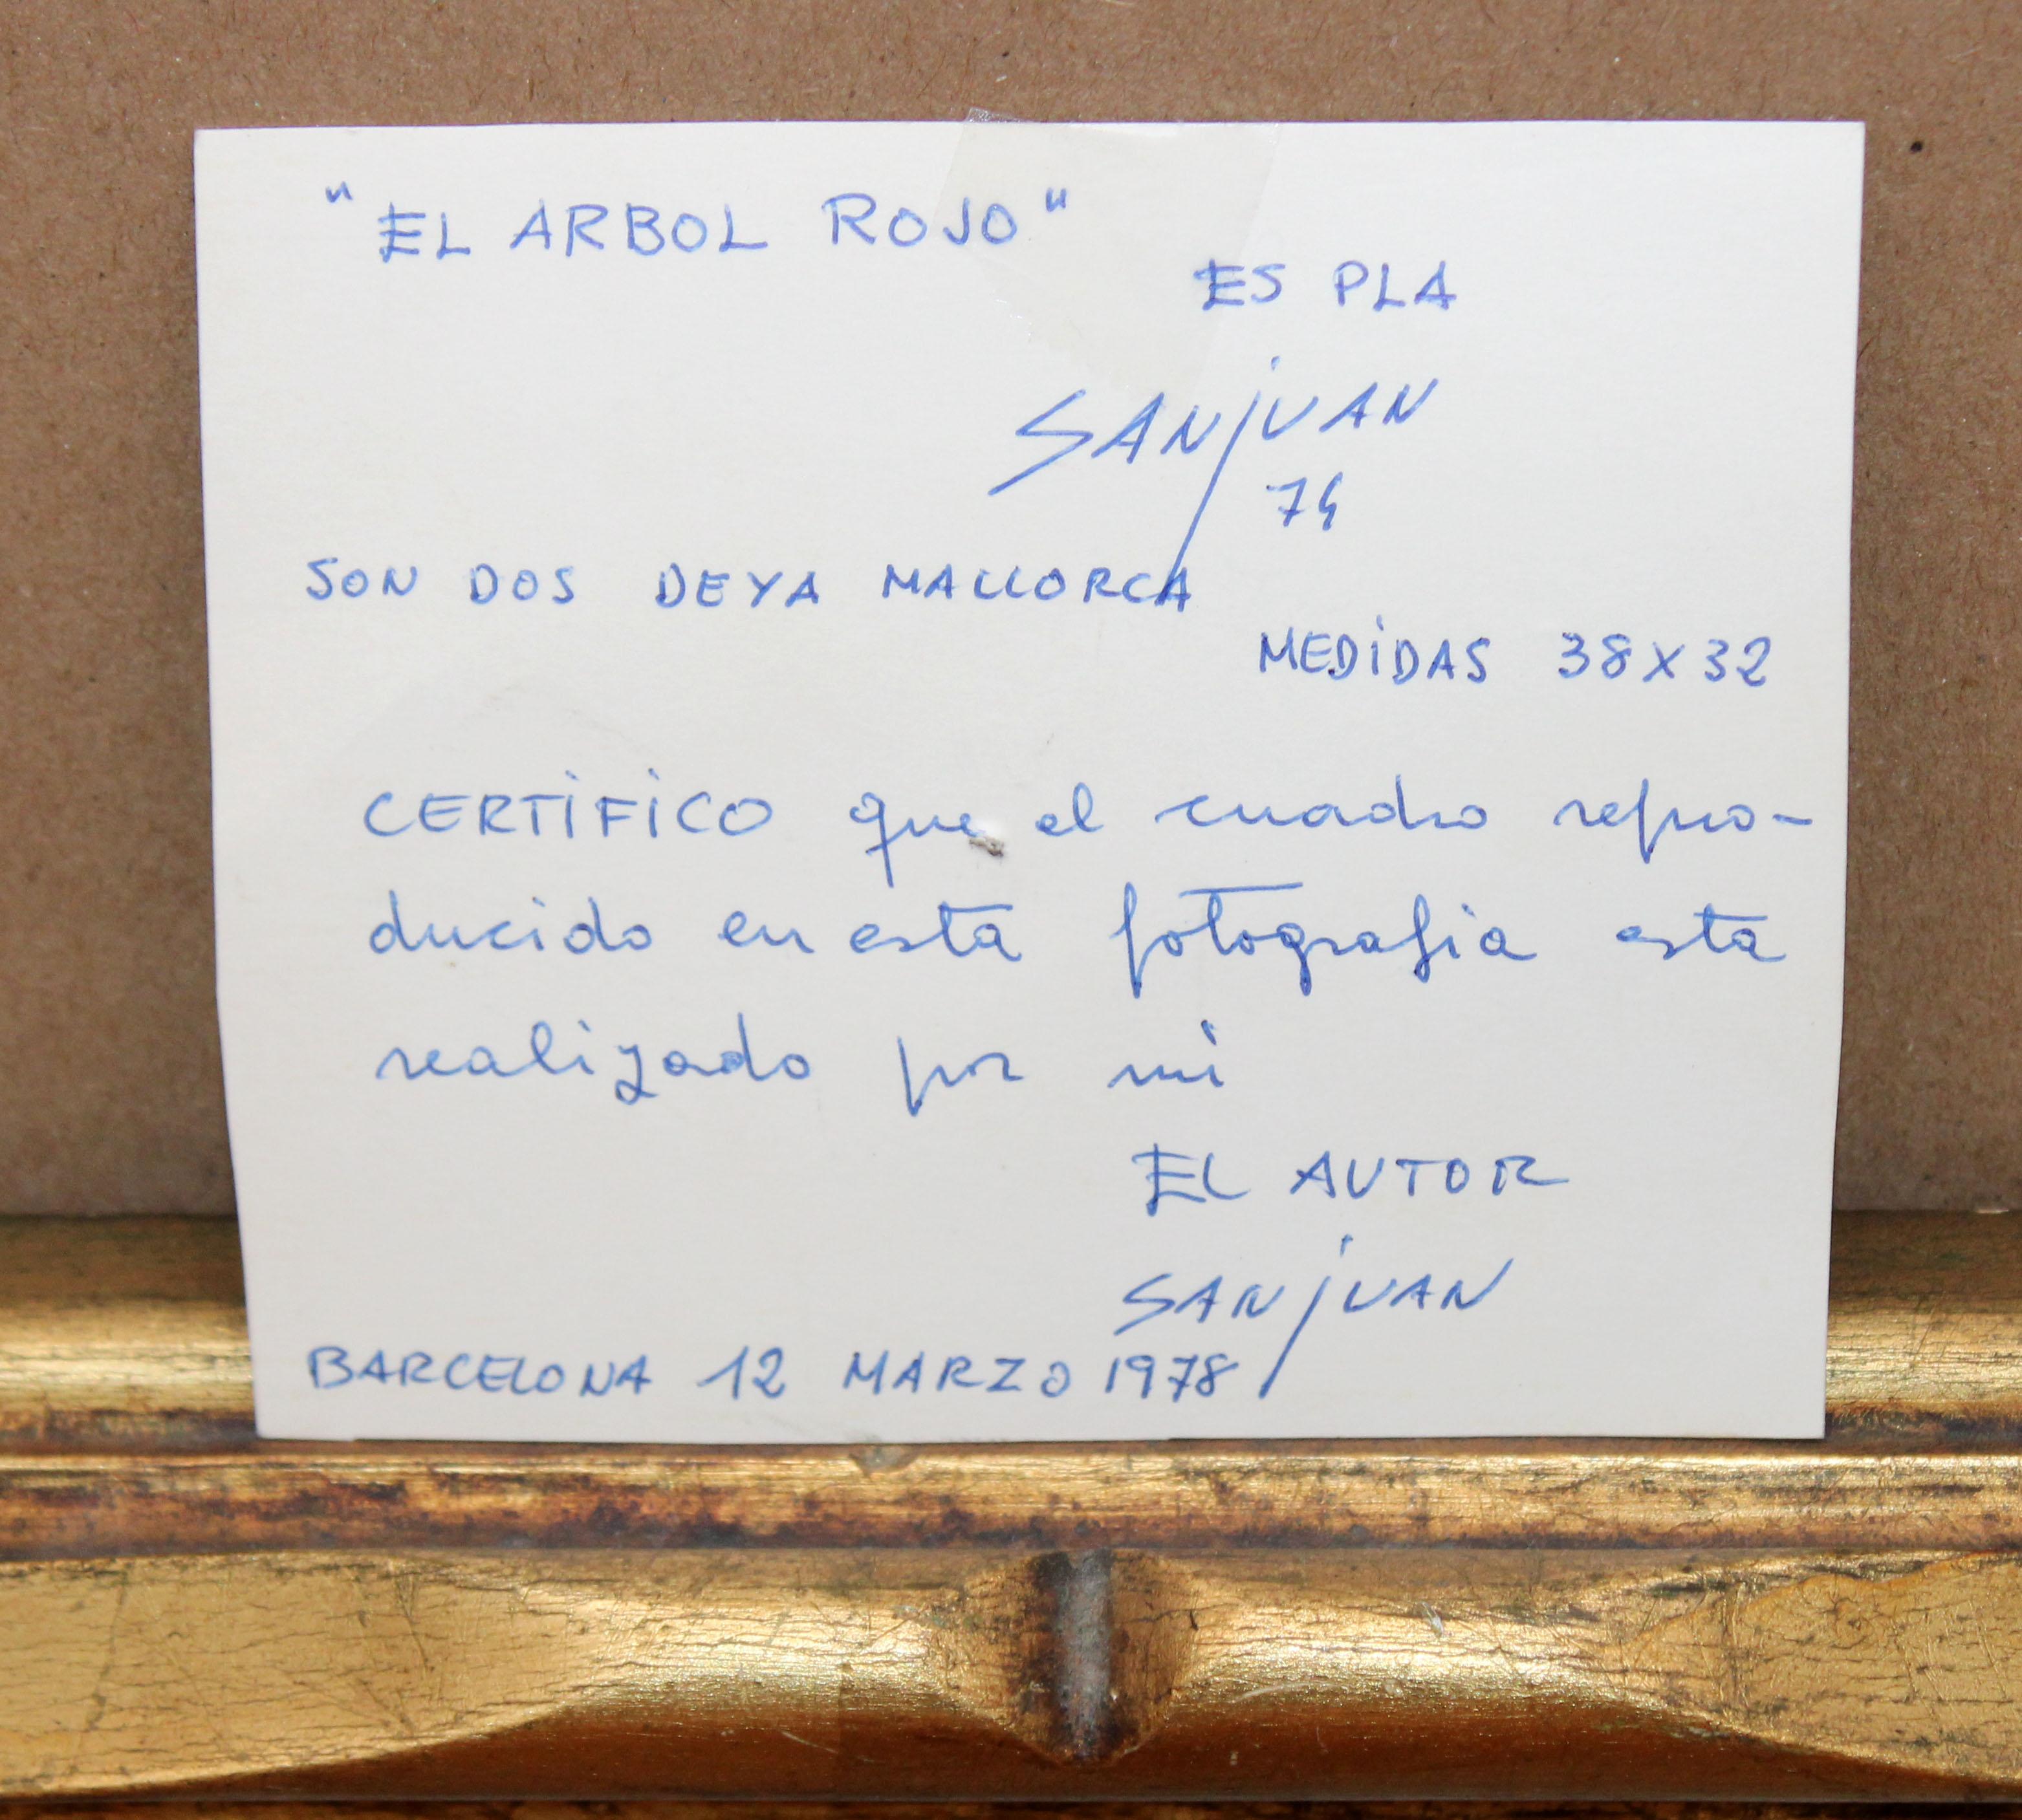 "EL ARBOL ROJO"
ES PLA
SANjUAN
74
SON DOS DEYA MALLORCA
MEDiDAS 38X32
CERTiFiCO que el cuadro repro-
ducido en esta fotografia esta
realizado por mi
EL AUTOR
SANjUAN
BARCELONA 12 MARZO 1978